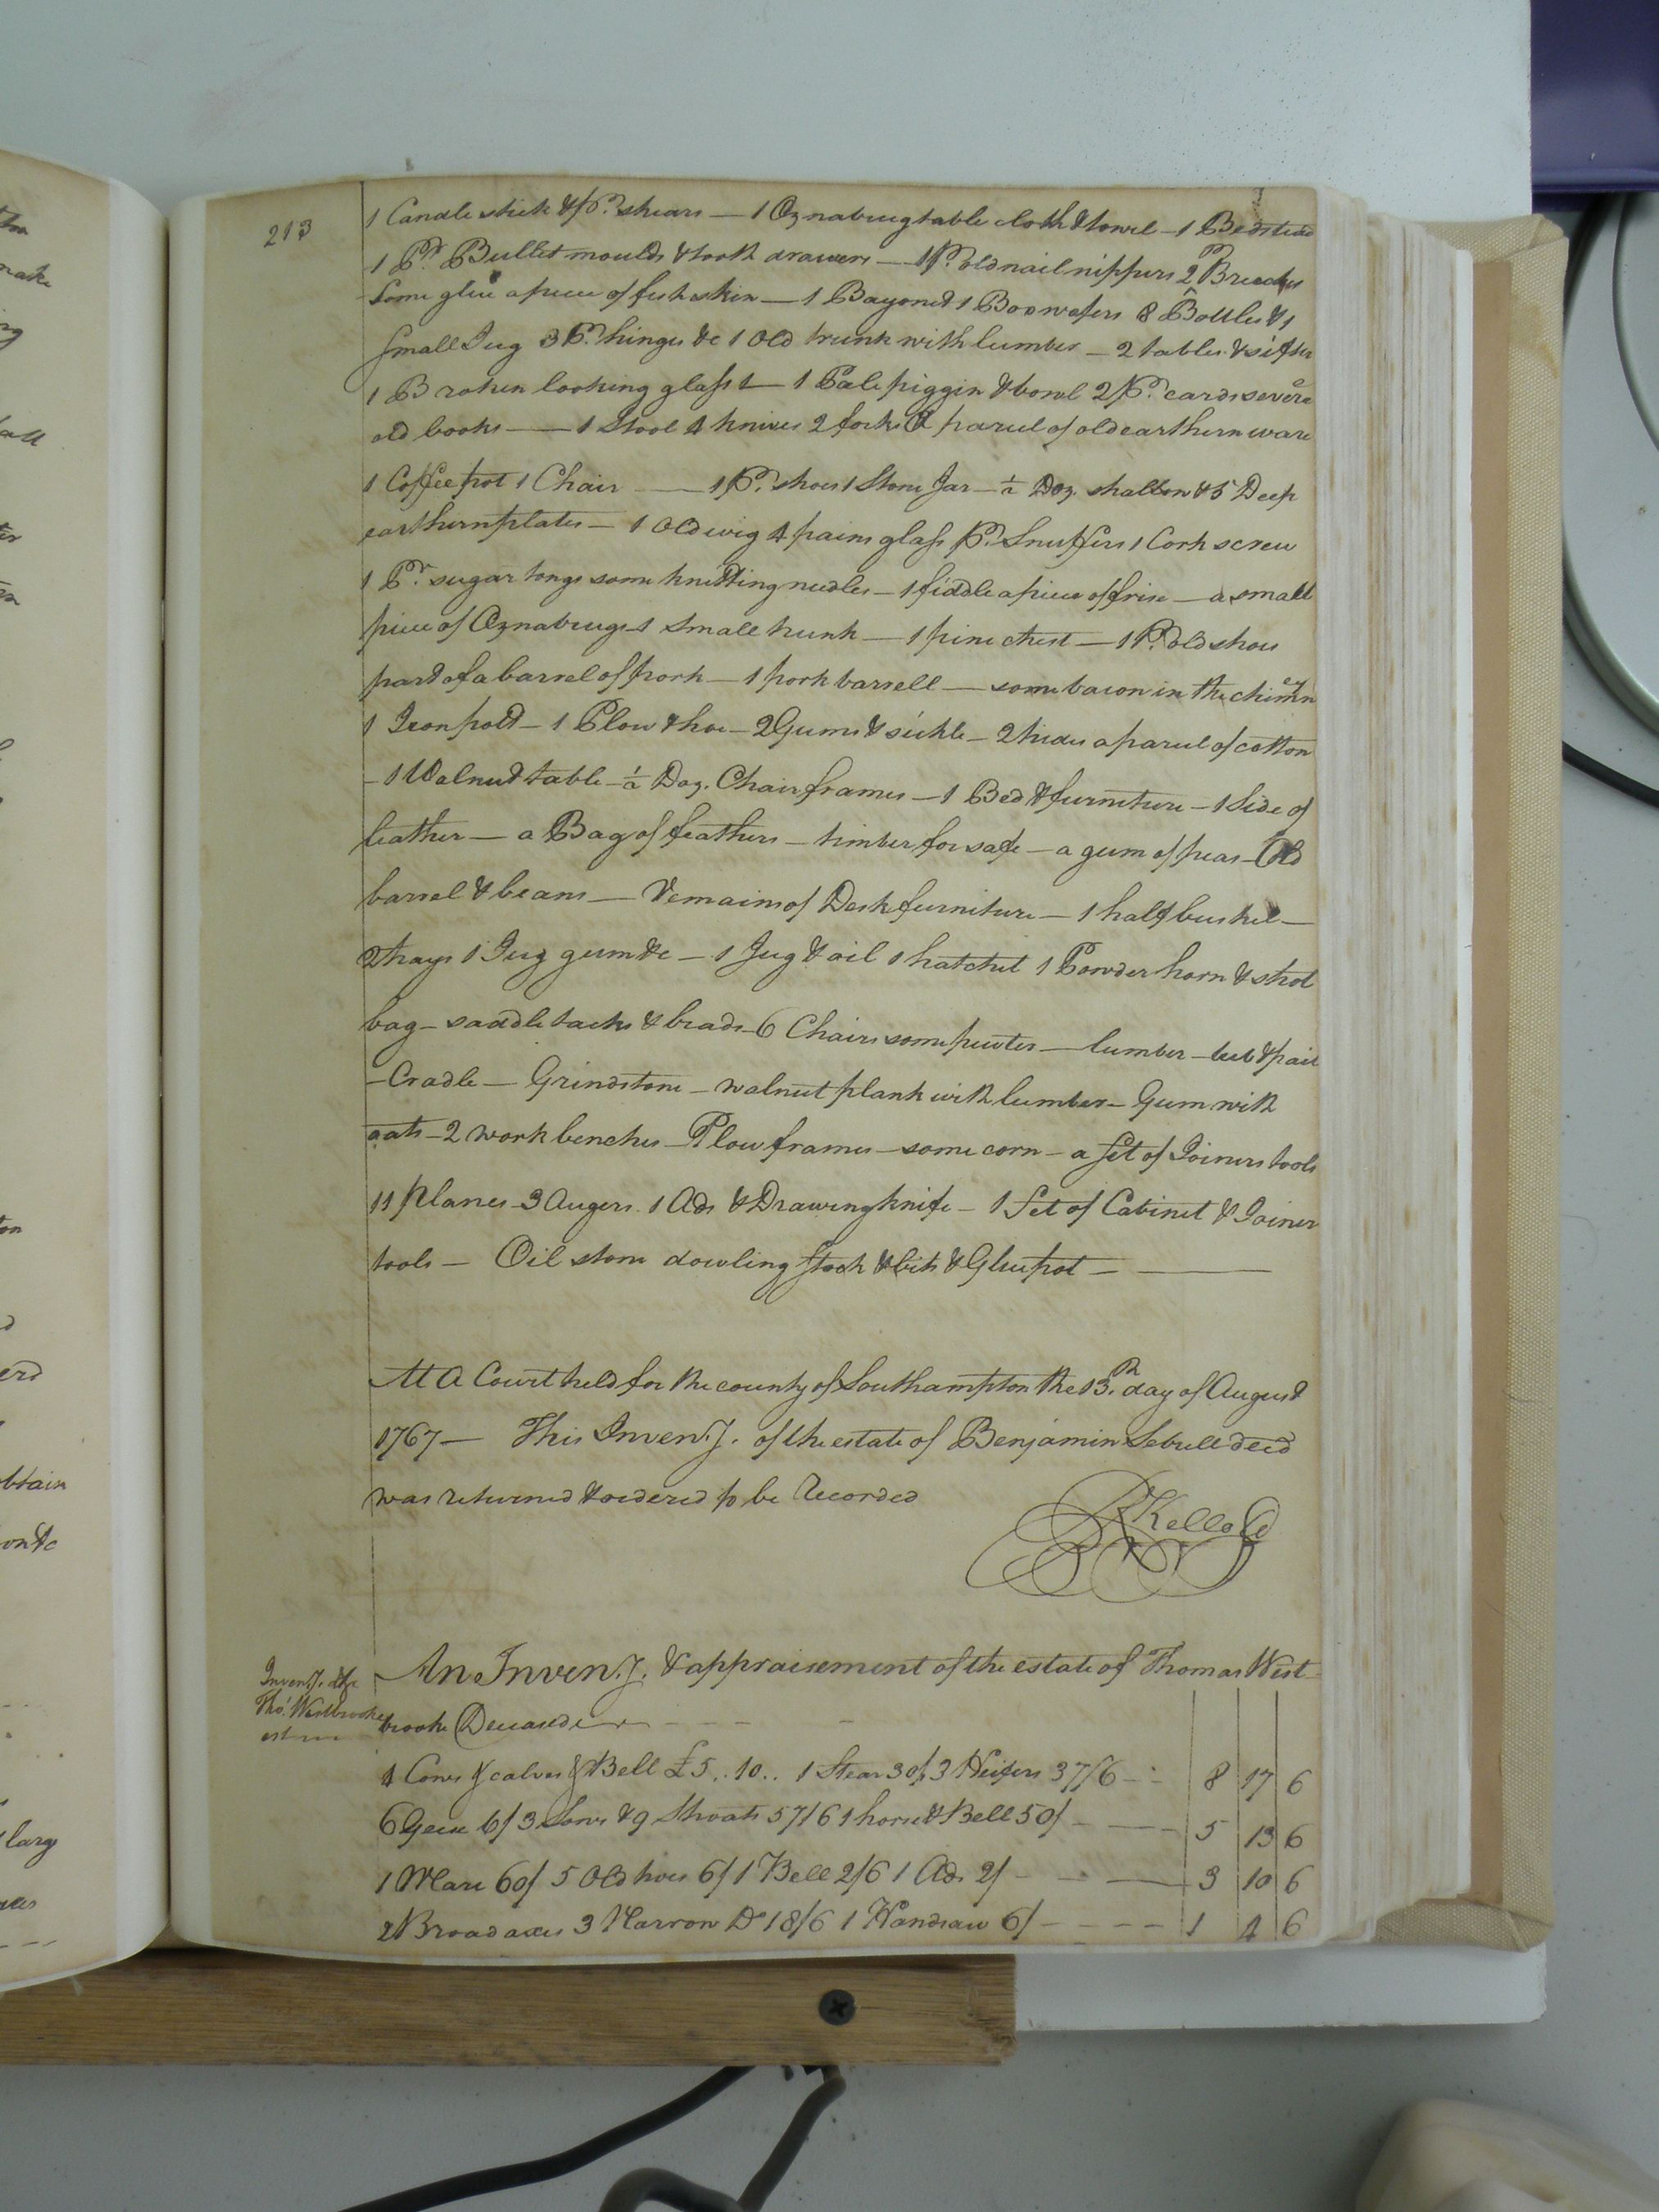 213
1 Candle stick & 1 Pr. shears — 1 Oznabrug table cloth & towel — 1 Bedstead
1 Pr. Bullet moulds & tooth drawers — 1 Pr. old nail nippers 2 Pr Breeches
Some glue a piece of fish skin — 1 Bayonet 1 Box wafers 8 Bottles & 1
Small Jug 3 Pr. hinges &c 1 Old trunk with lumber — 2 tables & sifter
1 Broken looking glass — 1 Pale piggin & bowl 2 Pr. cards several
old books — 1 Stool 4 knives 2 forks a parcel of old earthern ware
1 Coffee pot 1 Chair — 1 Pr. shoes 1 Stone Jar — ½ Doz. shallow & 5 Deep
earthern plates — 1 Old wig 4 pains glass Pr. Snuffers 1 Cork screw
1 Pr. sugar tongs some knitting needles — 1 fiddle a piece of frise — a small
piece of Oznabrugs 1 small trunk — 1 pine chest — 1 Pr. old shoes
part of a barrel of pork — 1 pork barrell — some bacon in the chimney
1 Iron pott — 1 Plow & hoe — 2 Gums & sickle — 2 hides a parcel of cotton
— 1 Walnut table — ½ Doz. Chair frames — 1 Bed & furniture — 1 Side of
leather — a Bag of feathers — timber for safe — a gum of peas — Old
barrel & beans — Remains of Desk furniture — 1 half bushel —
2 trays 1 Jug gum &c — 1 Jug & oil 1 hatchet 1 Powder horn & shot
bag — saddle tacks & brads — 6 Chairs some pewter — lumber — tub & pail
— Cradle — Grindstone — walnut plank with lumber — Gum with
oats — 2 work benches — Plow frames — some corn — a Set of Joiners tools
11 Planes 3 Augers. 1 Ads & Drawing knife — 1 Set of Cabinet & Joiner
tools — Oil stone dowling Stock & bits & Glue pot —
At a Court held for the county of Southampton the 13.th day of August
1767 — This Inven.y. of the estate of Benjamin Sebrell decd
was returned & ordered to be Recorded
R Kello
Inven.y. &c
Tho.s Westbrooke
est
An Inven.y. & appraisement of the estate of Thomas West-
brooke Deceased
4 Cows & calves & Bell £5..10.. 1 Stear 30/ 3 Heifers 37/6 — 8 17 6
6 Geese 6/ 3 Sows & 9 Shoats 57/6 1 horse & Bell 50/ — 5 13 6
1 Mare 60/ 5 Old hoes 6/ 1 Bell 2/6 1 Ads 2/ — 3 10 6
2 Broad axes 3 Narron Do 18/6 1 Handsaw 6/ — 1 4 6